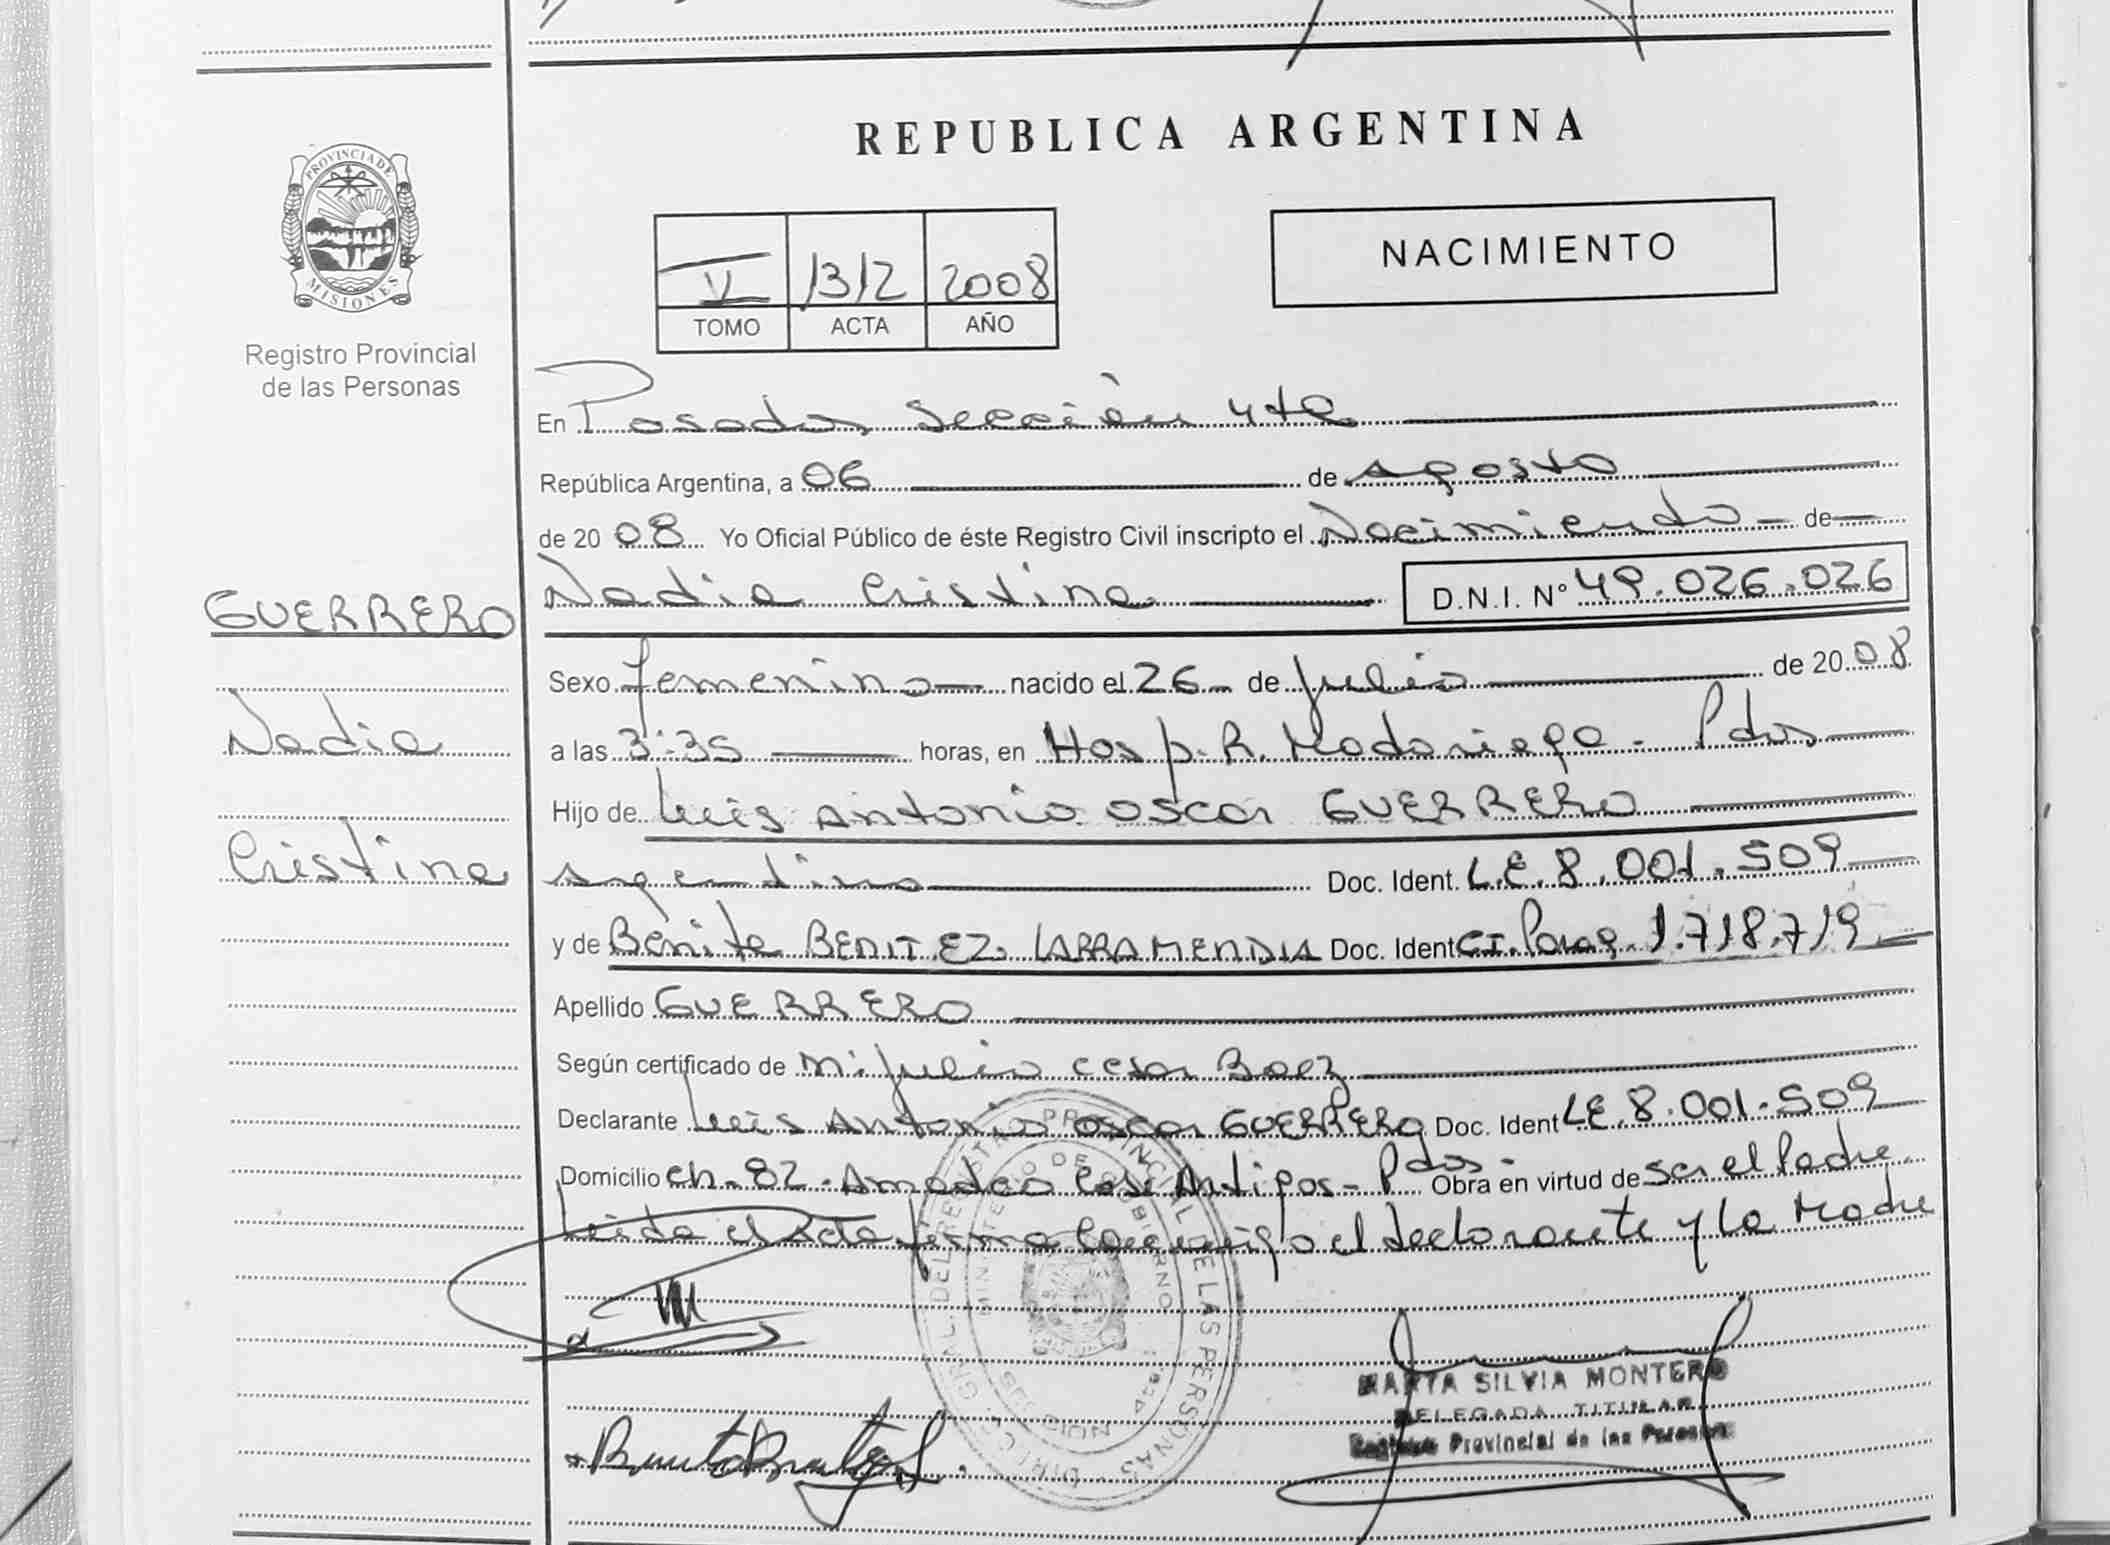 REPUBLICA ARGENTINA
PROVINCIA DE
MISIONES
Registro Provincial
de las Personas
NACIMIENTO
V 1312 2008
TOMO ACTA AÑO
En Posadas Sección 4ta
República Argentina, a 06 de agosto
de 2008 Yo Oficial Público de éste Registro Civil inscripto el Nacimiento de
GUERRERO
Nadia
Cristina
Nadia Cristina D.N.I. Nº 49.026.026
Sexo femenino nacido el 26 de julio de 2008
a las 3:35 horas, en Hosp. R. Madariaga - Pdas
Hijo de Luis Antonio Oscar GUERRERO
argentino Doc. Ident. L.E. 8.001.509
y de Benita BENITEZ LARRAMENDIA Doc. Ident C.I. Parag. 1.718.719
Apellido GUERRERO
Según certificado de Julio Cesar Baez
Declarante Luis Antonio Oscar GUERRERO Doc. Ident LE. 8.001.509
Domicilio Ch. 82 - Amadeo Pdas - Obra en virtud de ser el Padre.
Leida el Acta firma conmigo el declarante y la Madre
DIR. GRAL. DEL REGISTRO PROVINCIAL DE LAS PERSONAS
MINISTERIO DE GOBIERNO
MARTA SILVIA MONTERO
DELEGADA TITULAR
Registro Provincial de las Personas